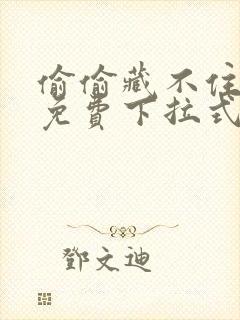 偷偷藏不住
免費下拉式
鄧文迪